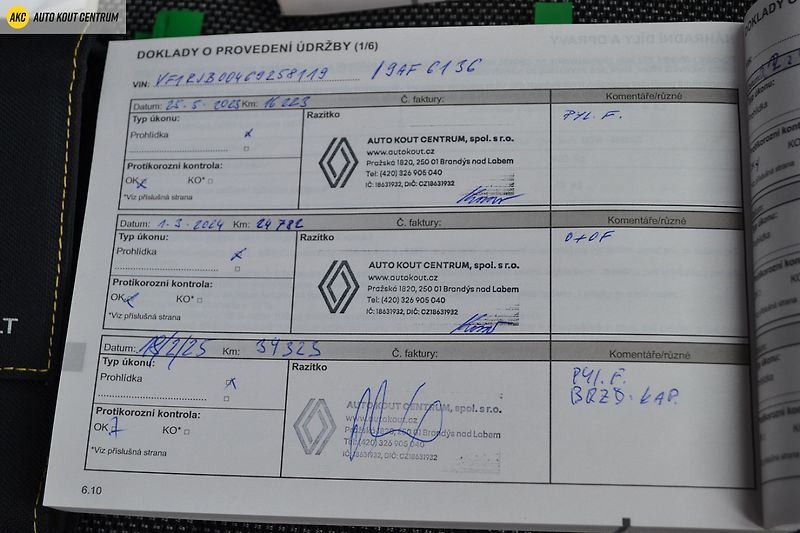 AKC AUTO KOUT CENTRUM
DOKLADY O PROVEDENÍ ÚDRŽBY (1/6)
VIN: VF1RJB00469258119 / 9AF 6136
Datum: 25. 5. 2023 Km: 16 223 Č. faktury: Komentáře/různé
Typ úkonu: Razítko PYL. F.
Prohlídka x
AUTO KOUT CENTRUM, spol. s r.o.
www.autokout.cz
Pražská 1820, 250 01 Brandýs nad Labem
Tel: (420) 326 905 040
IČ: 18631932, DIČ: CZ18631932
Protikorozní kontrola:
OK x KO*
*Viz příslušná strana
Datum: 1. 3. 2024 Km: 24 782 Č. faktury: Komentáře/různé
Typ úkonu: Razítko O+OF
Prohlídka x
AUTO KOUT CENTRUM, spol. s r.o.
www.autokout.cz
Pražská 1820, 250 01 Brandýs nad Labem
Tel: (420) 326 905 040
IČ: 18631932, DIČ: CZ18631932
Protikorozní kontrola:
OK x KO*
*Viz příslušná strana
Datum: 18/2/25 Km: 34325 Č. faktury: Komentáře/různé
Typ úkonu: Razítko PYL. F.
Prohlídka x BRZD. KAP.
AUTO KOUT CENTRUM, spol. s r.o.
www.autokout.cz
Pražská 1820, 250 01 Brandýs nad Labem
Tel: (420) 326 905 040
IČ: 18631932, DIČ: CZ18631932
Protikorozní kontrola:
OK KO*
*Viz příslušná strana
6.10